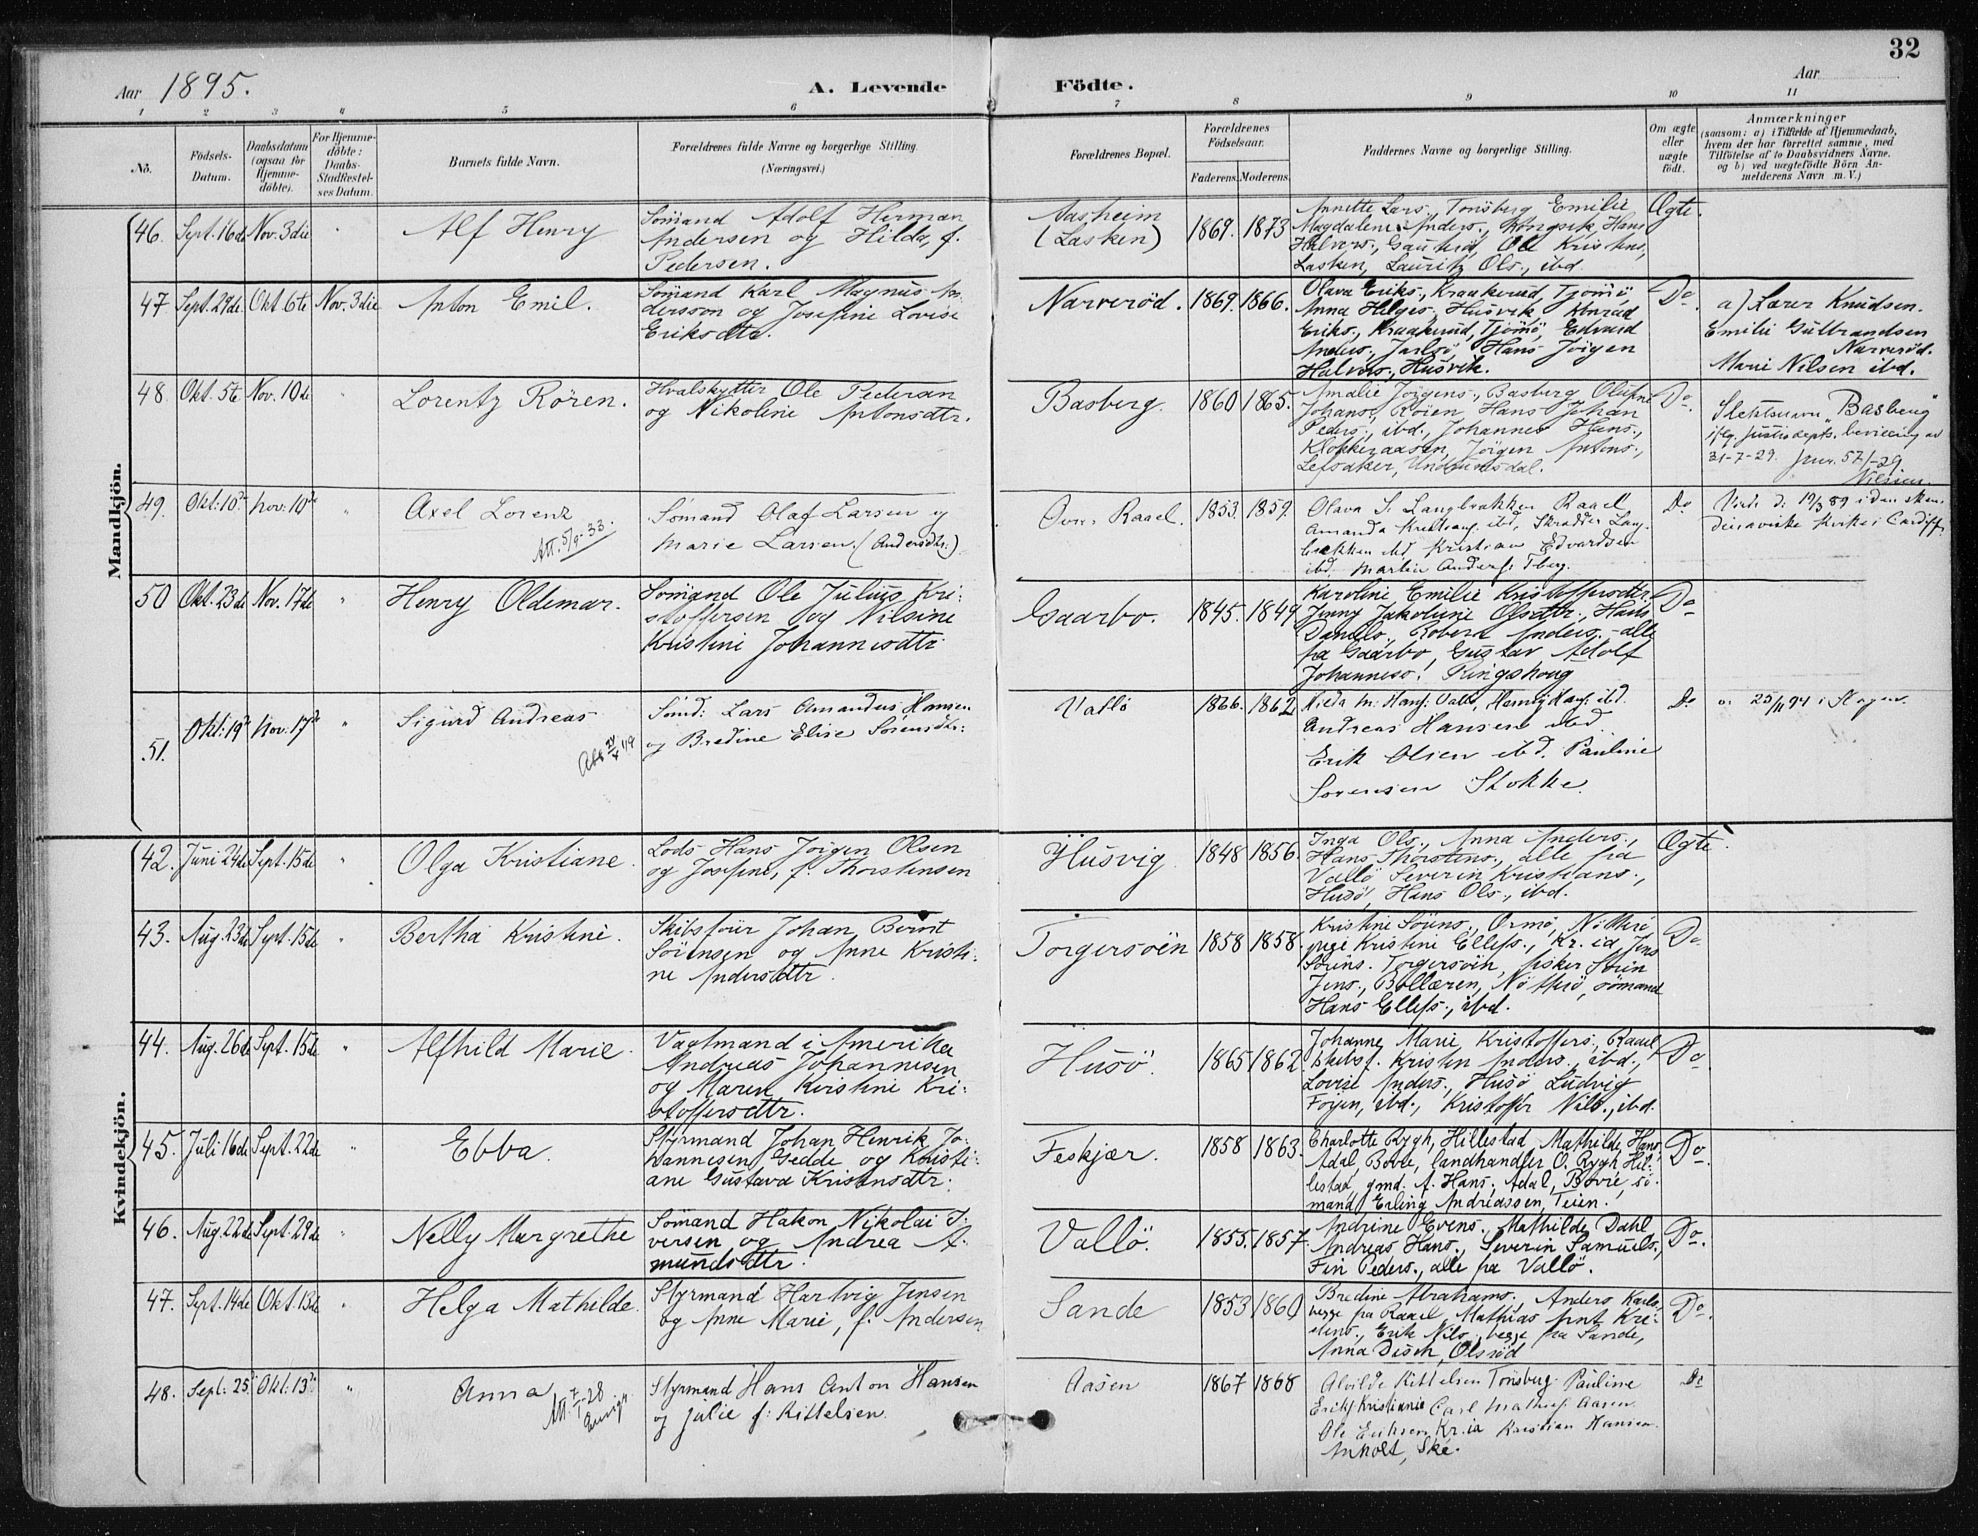 32
Aar 1895.
A. Levende
Födte.
Aar
1 2 3 4 5 6 7 8 9 10 11
No.
Födsels-
Datum.
Daabsdatum
(ogsaa for
Hjemme-
döbte).
For Hjemme-
döbte:
Daabs-
Stadfæstel-
ses Datum.
Barnets fulde Navn.
Forældrenes fulde Navne og borgerlige Stilling
(Næringsvei.)
Forældrenes Bopæl.
Forældrenes
Födselsaar.
Faderens. Moderens.
Faddernes Navne og borgerlige Stilling.
Om ægte
eller
uægte
födt.
Anmærkninger
(saasom: a) i Tilfælde af Hjemmedaab,
hvem der har forrettet samme, med
Tilföielse af to Daabsvidners Navne.
og b) ved uægtefödte Börn An-
melderens Navn m. V.)
Mandkjön.
46. Sept. 16de Nov. 3die " Alf Henry
Sömand Adolf Herman
Andersen og Hilda, f.
Pedersen.
Aasheim
(Lasken)
1869. 1873
Annette Lars. Tonsberg Emilie
Magdalene Anders., Hans
Halvors., Ole Kristens,
Lasken, Lauritz Ols., ibd.
Ægte.
47 Sept. 29de Okt. 6te Nov. 3die Anton Emil.
Sömand Karl Magnus An-
dersson og Josefine Lovise
Eriksdtr.
Narveröd. 1869. 1866.
Olava Eriks., Kraakerud, Tjömö,
Anna Helges., Husvik, Konrad
Eriks., Kraakerud, Tjömö, Edvard
Anders. Jarlsö, Hans Jörgen
Halvors., Husvik.
Do.
a) Lærer Knudsen.
Emilie Gulbrandsen
Narveröd.
Marie Nilsen ibd.
48. Okt. 5te Nov. 10de " Lorentz Rören.
Hvalskytter Ole Pedersen
og Nikoline Antonsdtr.
Basberg. 1860 1865.
Amalie Jörgens., Basberg, Olufine
Johans., Röien, Hans Johan
Peders., ibd., Johannes Hans.,
Klopperaasen, Jörgen Antons.,
Lefsaker, Undrumsdal.
Do.
Slektsnavn "Basberg"
iflg. Justisdepts. bevilling av
31-7-29. jnr. 57/-29
Nilsen.
49. Okt: 10de Nov: 10de " Axel Lorenz
Att. 5/9-33.
Sömand Olaf Larsen og
Marie Larsen. (Andersdtr:)
Övre Raael. 1853. 1859.
Olava S. Langbrakken Raael
Amanda Kristians. ibd, Skrædder Lang-
brekken ibd Kristian Edvardsen
ibd. Martin Anders. Tberg.
Do
Viede d: 19/3 89 i den skan-
dinaviske Kirke i Cardiff.
50 Okt. 23de Nov. 17de " Henry Oldemar.
Sömand Ole Julius Kri-
stoffersen og Nilsine
Kristine Johannesdtr
Gaarbo. 1845. 1849
Karoline Emilie Kristoffersdtr
Jenny Jakobine Olsdtr., Hans
Daniels., Robert Anders. - alle
fra Gaarbo, Gustav Adolf
Johanness. Ringshoug
Do
51. Okt: 19de Nov: 17de " Sigurd Andreas
Sömd: Lars Amandus Hansen
og Bredine Elise Sörensdtr:
Vallö 1866. 1862
Hilda M: Hans: Vallö, Henrig Hans: ibd.
Andreas Hansen ibd
Erik Olsen ibd. Pauline
Sorensen Stokke.
Do
v. 25/11 94 i Slagen.
Kvindekjön.
42. Juni 24de Sept. 15de " Olga Kristiane.
Lods Hans Jörgen Olsen
og Josefine, f. Thorstensen
Husvig. 1848 1856.
Inga Ols., Anna Anders.,
Hans Thorstens., alle fra
Vallö Severin Kristians.,
Husö, Hans Ols., ibd.
Ægte.
43. Aug. 23de Sept. 15de " Bertha Kristine.
Skibsförer Johan Bernt
Sörensen og Anne Kristi-
ne Andersdtr.
Torgersöien 1858 1858.
Kristine Sörens., Ormö, Nötterö
pige Kristine Ellefs., Kr.ia, Jens
Sörens. Torgersöien, fisker Sörin
Jens., Bollæren, Nötterö, sömand
Hans Ellefs., ibd.
Do
44. Aug. 26de Sept. 15de " Alfhild Marie.
Vagtmand i Amerika
Andreas Johannesen
og Maren Kristine Kri-
stoffersdtr.
Husö. 1865 1862
Johanne Marie Kristoffers., Raael
Skibsf. Kristen Anders., ibd.,
Lovise Anders., Husö Ludvig
Föyen, ibd., Kristoffer Nils., ibd.
Do
45. Juli 16de Sept. 22de " Ebba.
Styrmand Johan Henrik Jo-
hannesen Gedde og Kristi-
ane Gustava Kristensdtr.
Feskjær. 1858 1863.
Charlotte Rygh, Hillestad, Mathilde Hans.
Adal, Borre, landhandler O. Rygh, Hil-
lestad, gmd. A. Hans., Adal, Borre, sö-
mand Erling Andreassen, Teien.
Do
46. Aug. 22de Sept. 29de " Nelly Margrethe
Sömand Hakon Nikolai I-
versen og Andrea A-
mundsdtr.
Vallö. 1855. 1857.
Andrine Evens., Mathilde Dahl
Andreas Hans., Severin Samuels.,
Fin Peders., alle fra Vallö.
Do.
47. Sept. 14de Okt. 13de " Helga Mathilde.
Styrmand Hartvig Jensen
og Anne Marie, f. Andersen
Sande 1853 1860
Bredine Abrahams., Anders Karls.,
begge fra Raael, Mathias Ant. Kri-
stens., Erik Nils., begge fra Sande,
Anna Disch, Olsröd
Do.
48. Sept: 25 Okt: 13de " Anna
Styrmand Hans Anton Hansen
og Julie f: Kittelsen.
Aasen 1867 1868
Alvilde Kittelsen Tönsberg Pauline
Eriks. Kristiania Carl Mathias. Aasen.
Ole Eriksen Kr.ia Kristian Hansen
Anholt, Ske.
Do